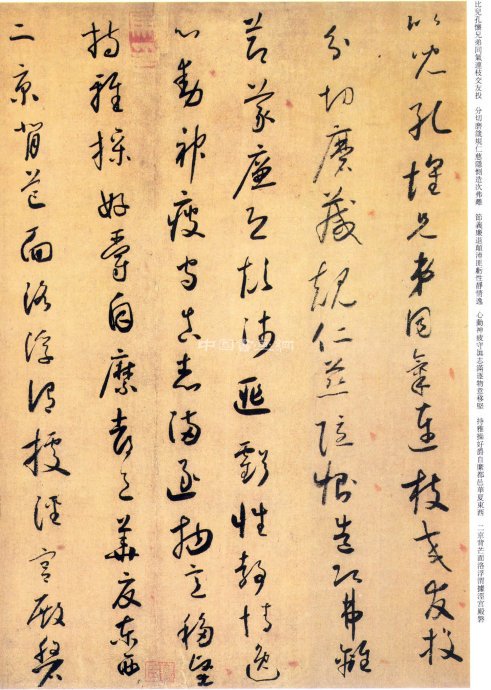 比兒孔懷兄弟同氣連枝交友投 分切磨箴規仁慈隱惻造次弗離 節義廉退顛沛匪虧性靜情逸 心動神疲守真志滿逐物意移堅 持雅操好爵自縻都邑華夏東西 二京背芒面洛浮渭據涇宮殿磐
比兒孔懷兄弟同氣連枝交友投
分切磨箴規仁慈隱惻造次弗離
節義廉退顛沛匪虧性靜情逸
心動神疲守真志滿逐物意移堅
持雅操好爵自縻都邑華夏東西
二京背芒面洛浮渭據涇宮殿磐